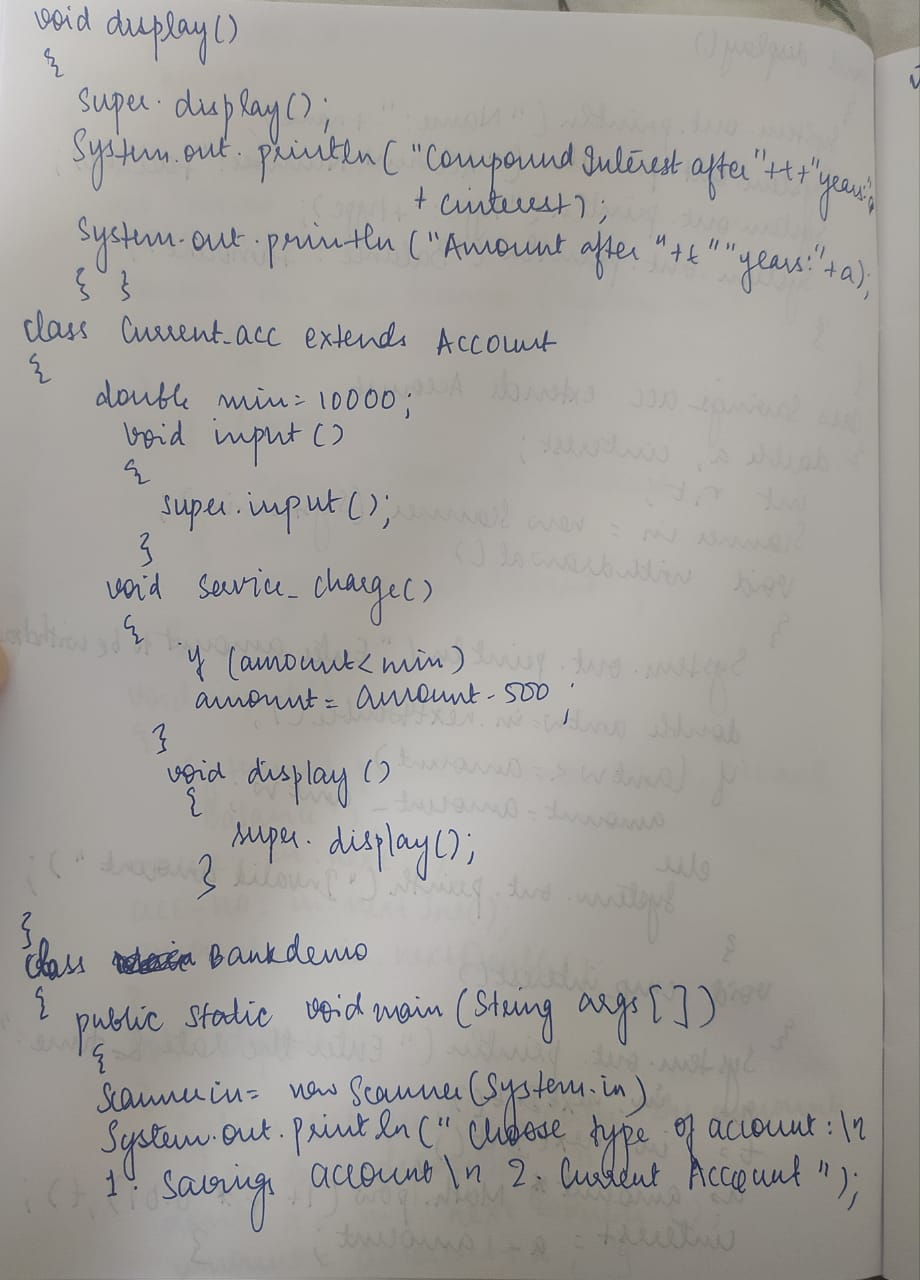 void display()
{
super. display();
System.out. println ( "Compound Interest after"+t+"years:"
+ cinterest);
System.out.println ("Amount after "+t" "years:"+a);
} }
class Current_acc extends Account
{
double min= 10000;
void input ()
{
super.input();
}
void Service_charge()
{
if (amount<min)
amount= amount-500;
}
void display ()
{
super. display();
}
}
class Bankdemo
{ public static void main (String args[])
{
Scanner in= new Scanner(System.in)
System.out.println(" Choose type of account:\n
1. Savings account\n 2. Current Account ");